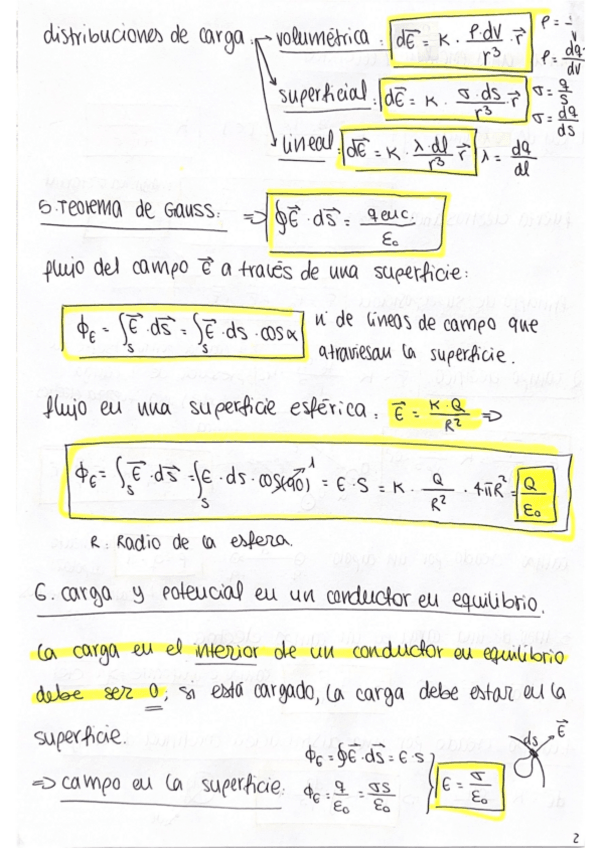 distribuciones de carga. → volumétrica : d\vec{E} = K · ρ·dV/r³ · \vec{r}   ρ = dq/dV
superficial : d\vec{E} = K · σ·ds/r³ \vec{r}   σ = q/S   σ = dq/ds
lineal : d\vec{E} = K · λ·dl/r³ · \vec{r}   λ = dq/dl
5. Teorema de Gauss. ⇒ ∮\vec{E} · d\vec{s} = q enc./ε₀
flujo del campo \vec{E} a través de una superficie:
ϕ_E = ∫_S \vec{E} · d\vec{s} = ∫_S \vec{E} · ds · cos α   nº de líneas de campo que
atraviesan la superficie.
flujo en una superficie esférica: \vec{E} = K·Q/R² ⇒
ϕ_E = ∫_S \vec{E} · d\vec{s} = ∫_S E · ds · cos(0) 1 = E·S = K · Q/R² · 4πR² = Q/ε₀
R: Radio de la esfera.
6. Carga y potencial en un conductor en equilibrio.
La carga en el interior de un conductor en equilibrio
debe ser 0, si está cargado, la carga debe estar en la
superficie.
ϕ_E = ∮\vec{E} · d\vec{s} = E·S   ds   \vec{E}
⇒ campo en la superficie: ϕ_E = q/ε₀ = σS/ε₀ } E = σ/ε₀
2